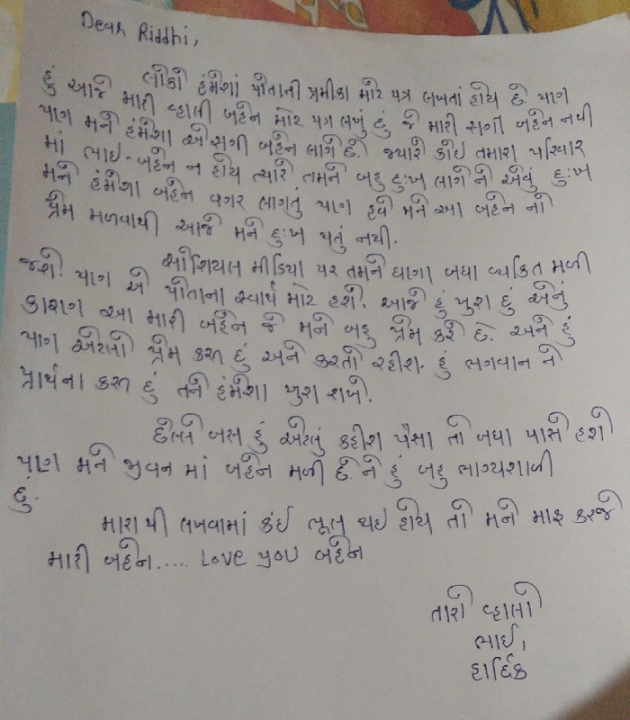 Dear Riddhi,
લોકો હંમેશાં પોતાની પ્રેમીકા માટે પત્ર લખતાં હોય છે પણ
હું આજે મારી વ્હાલી બહેન માટે પત્ર લખું છું જે મારી સગી બહેન નથી
પણ મને હંમેશા એ સગી બહેન લાગે છે. જ્યારે કોઇ તમારા પરિવાર
માં ભાઇ-બહેન ન હોય ત્યારે તમને બહુ દુઃખ લાગે ને એવું દુઃખ
મને હંમેશા બહેન વગર લાગતું પણ હવે મને આ બહેન નો
પ્રેમ મળવાથી આજે મને દુઃખ થતું નથી.
સોશિયલ મીડિયા પર તમને ઘણા બધા વ્યકિત મળી
જશે. પણ એ પોતાના સ્વાર્થ માટે હશે. આજે હું ખુશ છું એનું
કારણ આ મારી બહેન જે મને બહુ પ્રેમ કરે છે. અને હું
પણ એટલો પ્રેમ કરુ છું અને કરતો રહીશ. હું ભગવાન ને
પ્રાર્થના કરુ છું તને હંમેશા ખુશ રાખે.
છેલ્લે બસ હું એટલું કહીશ પૈસા તો બધા પાસે હશે
પણ મને જીવન માં બહેન મળી છે ને હું બહુ ભાગ્યશાળી
છું.
મારાથી લખવામાં કંઇ ભૂલ થઇ હોય તો મને માફ કરજે
મારી બહેન..... Love you બહેન
તારો વ્હાલો
ભાઇ,
હાર્દિક